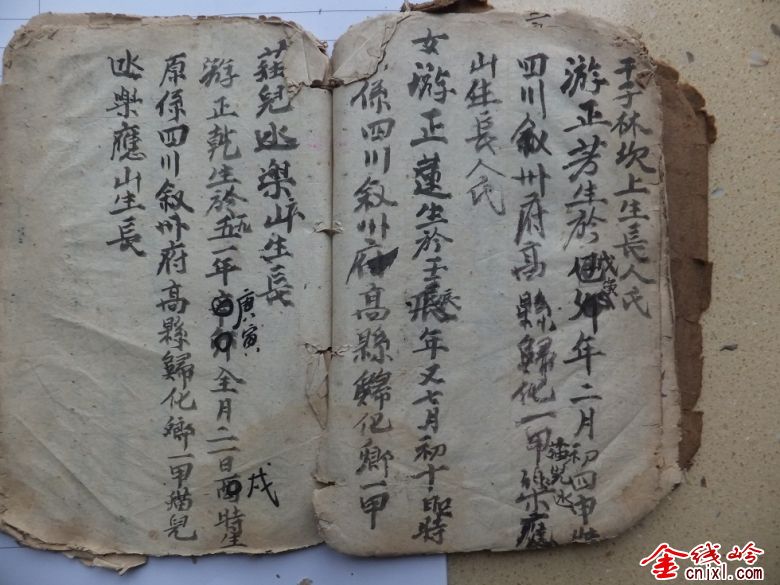 干子林坎上生長人氏
游正芳生於戊寅年二月初四申時
四川叙州府高縣歸化一甲苗兒水樂應
山生長人氏
女游正蓮生於壬辰年又七月初十日時
係四川叙州府高縣歸化鄉一甲
苗兒水樂山生長
游正乾生於五一年庚寅全月二日戌時生
原係四川叙州府高縣歸化鄉一甲猫兒
水樂應山生長
金线岭
cnixl.com